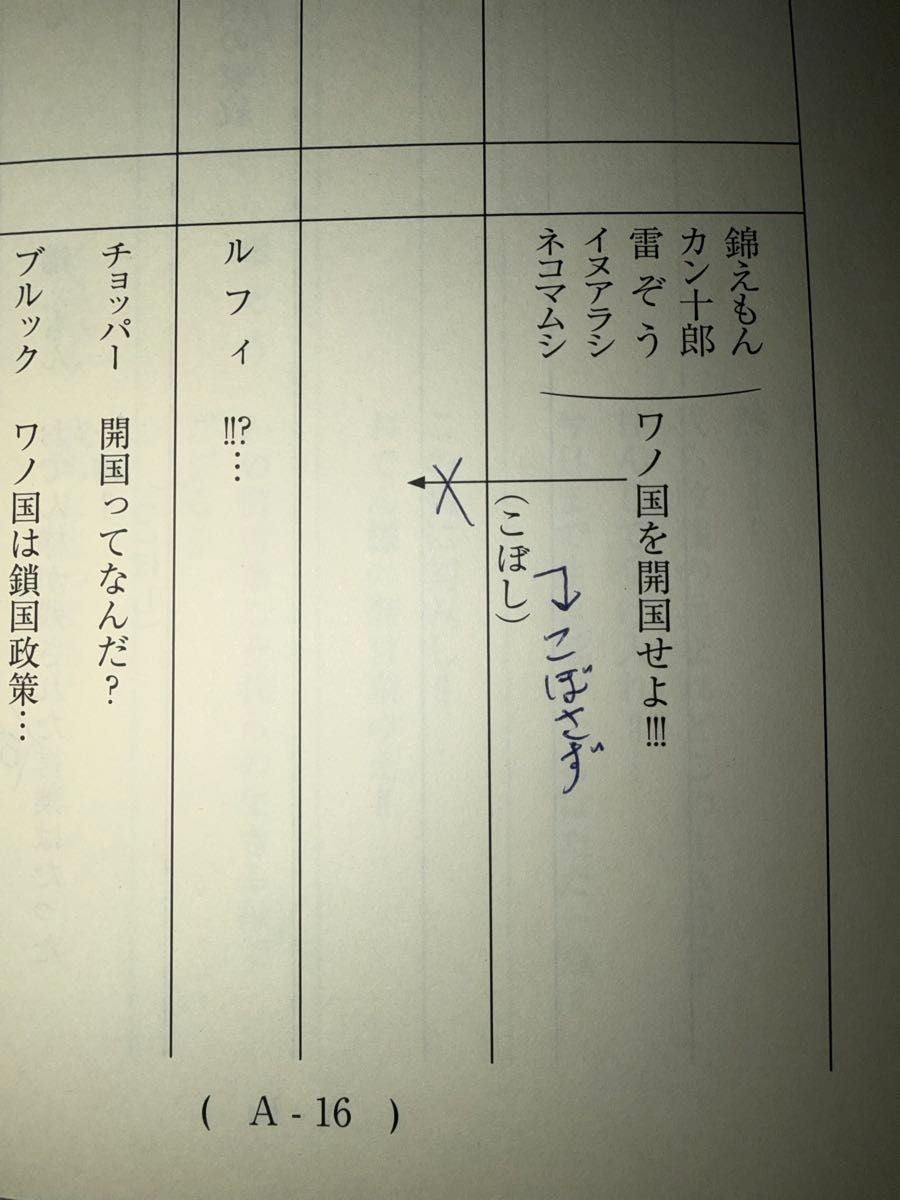 錦えもん
カン十郎
雷ぞう
イヌアラシ
ネコマムシ
ワノ国を開国せよ!!!
(こぼし)
こぼさず
ルフィ !!?…
チョッパー 開国ってなんだ?
ブルック ワノ国は鎖国政策…
( A - 16 )